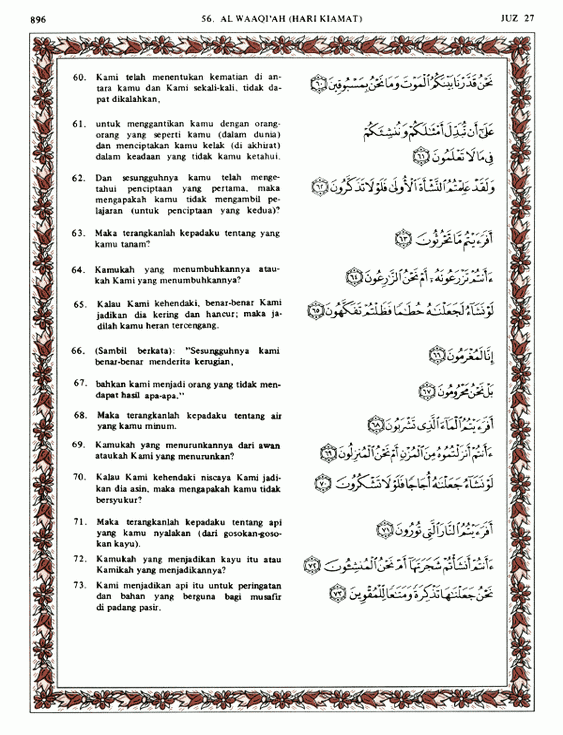 896
56. AL WAAQI'AH (HARI KIAMAT)
JUZ 27
60. Kami telah menentukan kematian di an-
tara kamu dan Kami sekali-kali, tidak da-
pat dikalahkan,
نَحْنُ قَدَّرْنَا بَيْنَكُمُ الْمَوْتَ وَمَا نَحْنُ بِمَسْبُوقِينَ ٦٠
61. untuk menggantikan kamu dengan orang-
orang yang seperti kamu (dalam dunia)
dan menciptakan kamu kelak (di akhirat)
dalam keadaan yang tidak kamu ketahui.
عَلَىٰ أَن نُّبَدِّلَ أَمْثَالَكُمْ وَنُنشِئَكُمْ
فِي مَا لَا تَعْلَمُونَ ٦١
62. Dan sesungguhnya kamu telah menge-
tahui penciptaan yang pertama, maka
mengapakah kamu tidak mengambil pe-
lajaran (untuk penciptaan yang kedua)?
وَلَقَدْ عَلِمْتُمُ النَّشْأَةَ الْأُولَىٰ فَلَوْلَا تَذَكَّرُونَ ٦٢
63. Maka terangkanlah kepadaku tentang yang
kamu tanam?
أَفَرَءَيْتُم مَّا تَحْرُثُونَ ٦٣
64. Kamukah yang menumbuhkannya atau-
kah Kami yang menumbuhkannya?
ءَأَنتُمْ تَزْرَعُونَهُ أَمْ نَحْنُ الزَّارِعُونَ ٦٤
65. Kalau Kami kehendaki, benar-benar Kami
jadikan dia kering dan hancur; maka ja-
dilah kamu heran tercengang.
لَوْ نَشَاءُ لَجَعَلْنَاهُ حُطَامًا فَظَلْتُمْ تَفَكَّهُونَ ٦٥
66. (Sambil berkata): "Sesungguhnya kami
benar-benar menderita kerugian,
إِنَّا لَمُغْرَمُونَ ٦٦
67. bahkan kami menjadi orang yang tidak men-
dapat hasil apa-apa."
بَلْ نَحْنُ مَحْرُومُونَ ٦٧
68. Maka terangkanlah kepadaku tentang air
yang kamu minum.
أَفَرَءَيْتُمُ الْمَاءَ الَّذِي تَشْرَبُونَ ٦٨
69. Kamukah yang menurunkannya dari awan
ataukah Kami yang menurunkan?
ءَأَنتُمْ أَنزَلْتُمُوهُ مِنَ الْمُزْنِ أَمْ نَحْنُ الْمُنزِلُونَ ٦٩
70. Kalau Kami kehendaki niscaya Kami jadi-
kan dia asin, maka mengapakah kamu tidak
bersyukur?
لَوْ نَشَاءُ جَعَلْنَاهُ أُجَاجًا فَلَوْلَا تَشْكُرُونَ ٧٠
71. Maka terangkanlah kepadaku tentang api
yang kamu nyalakan (dari gosokan-goso-
kan kayu).
أَفَرَءَيْتُمُ النَّارَ الَّتِي تُورُونَ ٧١
72. Kamukah yang menjadikan kayu itu atau
Kamikah yang menjadikannya?
ءَأَنتُمْ أَنشَأْتُمْ شَجَرَتَهَا أَمْ نَحْنُ الْمُنشِئُونَ ٧٢
73. Kami menjadikan api itu untuk peringatan
dan bahan yang berguna bagi musafir
di padang pasir.
نَحْنُ جَعَلْنَاهَا تَذْكِرَةً وَمَتَاعًا لِّلْمُقْوِينَ ٧٣